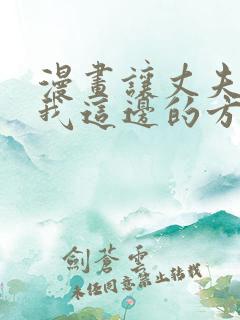 漫畫讓丈夫
我這邊的方
劍蒼雲
未經同意禁止轉載